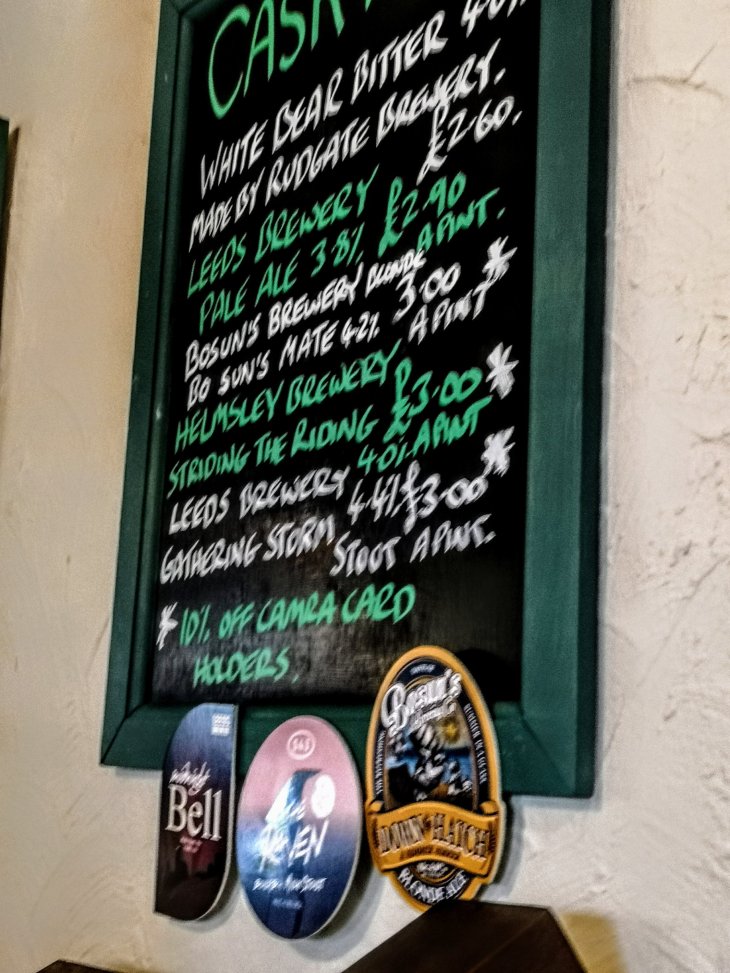 CASK
WHITE BEAR BITTER 4.0%
MADE BY RUDGATE BREWERY.
£2.60.
LEEDS BREWERY £2.90
PALE ALE 3.8% A PINT.
BOSUN'S BREWERY BLONDE
BO SUN'S MATE 4.2% 3.00 *
A PINT
HELMSLEY BREWERY £3.00 *
STRIDING THE RIDING 4.0% A PINT
LEEDS BREWERY 4.4% £3.00 *
GATHERING STORM STOOT A PINT.
* 10% OFF CAMRA CARD
HOLDERS.
midnight
Bell
Bosun's
DOWN HATCH